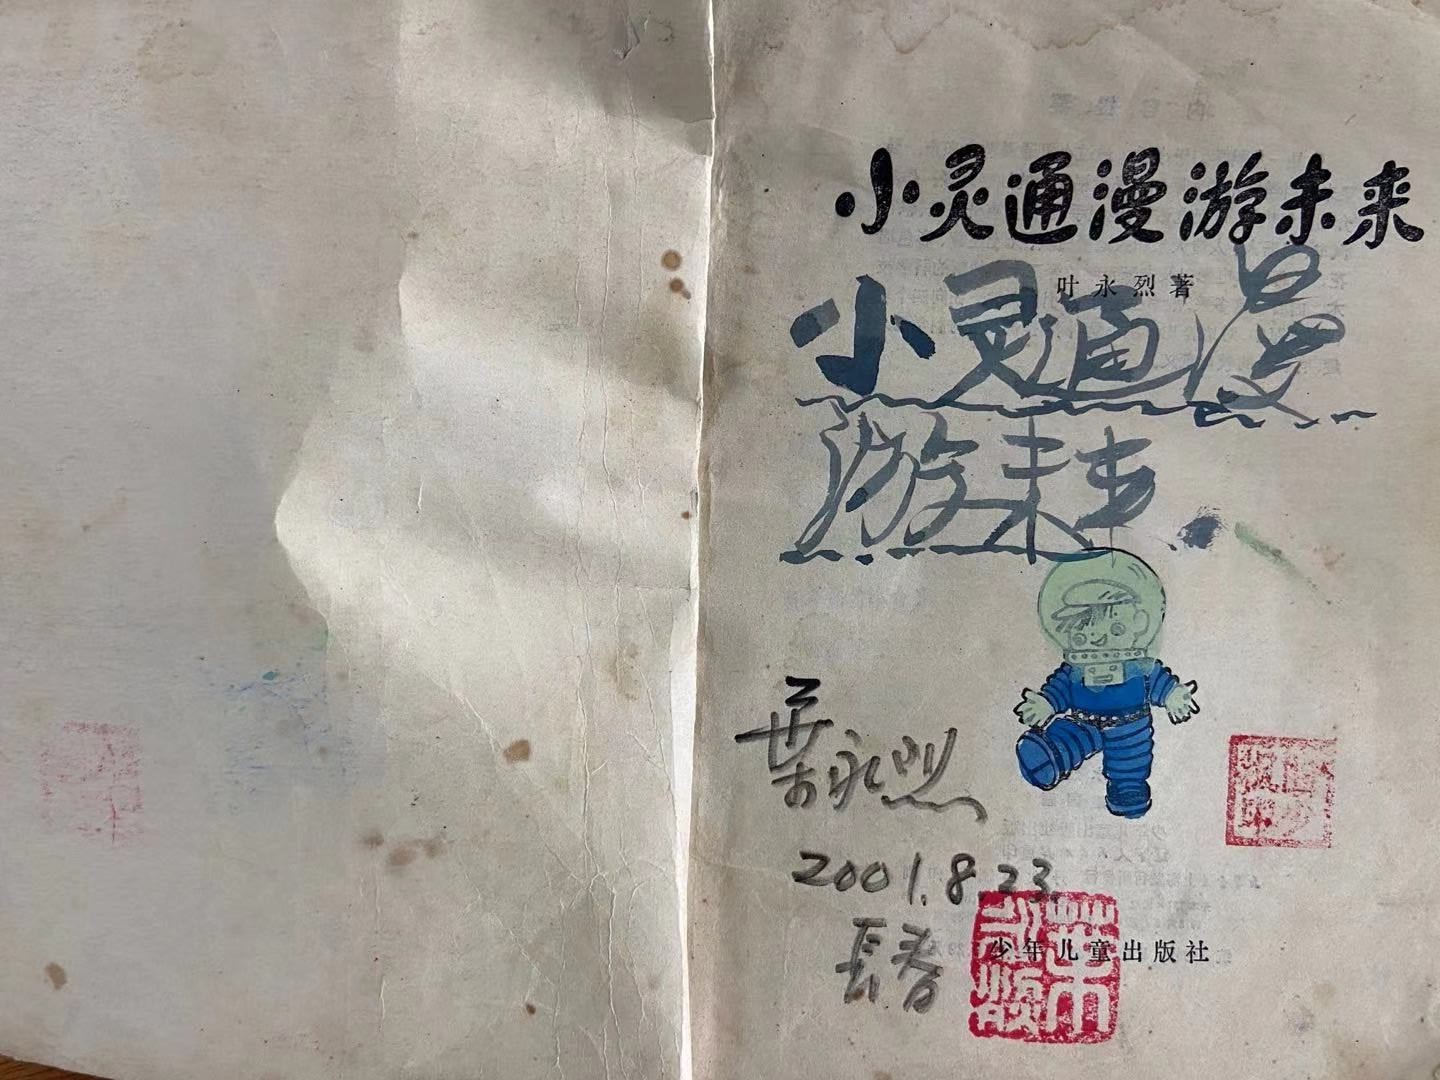 小灵通漫游未来
叶永烈著
小灵通漫
游未来
葉永烈
2001.8.23.
長春
少年儿童出版社